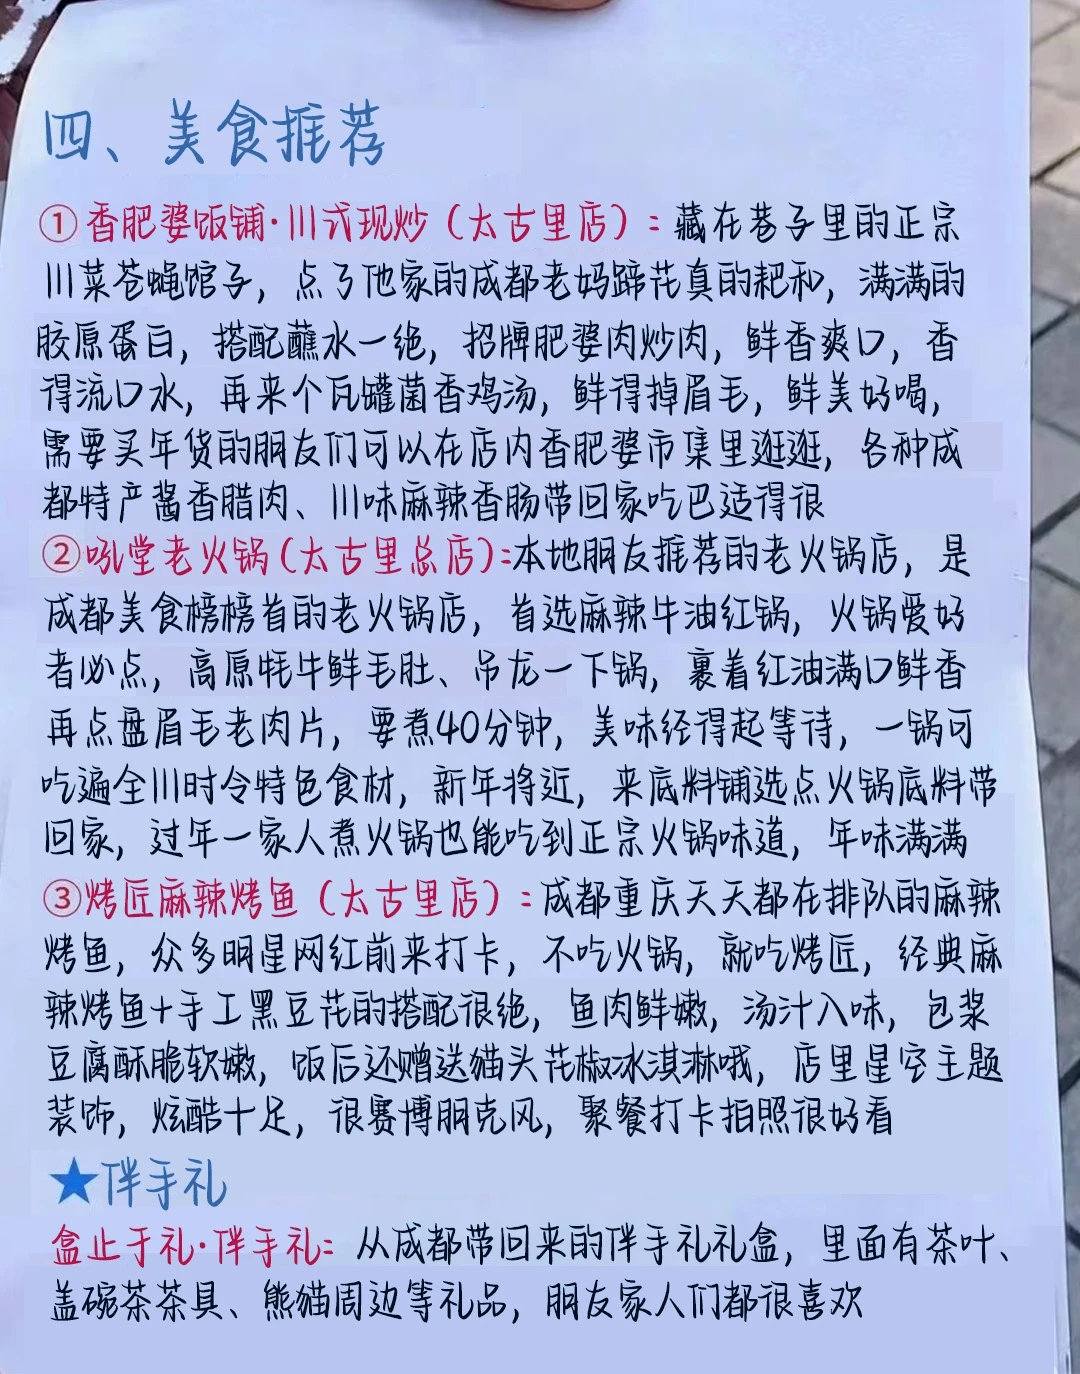 四、美食推荐
①香肥婆饭铺·川式现炒（太古里店）：藏在巷子里的正宗
川菜苍蝇馆子，点了他家的成都老妈蹄花真的耙和，满满的
胶原蛋白，搭配蘸水一绝，招牌肥婆肉炒肉，鲜香爽口，香
得流口水，再来个瓦罐菌香鸡汤，鲜得掉眉毛，鲜美好喝，
需要买年货的朋友们可以在店内香肥婆市集里逛逛，各种成
都特产酱香腊肉、川味麻辣香肠带回家吃巴适得很
②吼堂老火锅（太古里总店）：本地朋友推荐的老火锅店，是
成都美食榜榜首的老火锅店，首选麻辣牛油红锅，火锅爱好
者必点，高原牦牛鲜毛肚、吊龙一下锅，裹着红油满口鲜香
再点盘眉毛老肉片，要煮40分钟，美味经得起等待，一锅可
吃遍全川时令特色食材，新年将近，来底料铺选点火锅底料带
回家，过年一家人煮火锅也能吃到正宗火锅味道，年味满满
③烤匠麻辣烤鱼（太古里店）：成都重庆天天都在排队的麻辣
烤鱼，众多明星网红前来打卡，不吃火锅，就吃烤匠，经典麻
辣烤鱼+手工黑豆花的搭配很绝，鱼肉鲜嫩，汤汁入味，包浆
豆腐酥脆软嫩，饭后还赠送猫头花椒冰淇淋哦，店里星空主题
装饰，炫酷十足，很赛博朋克风，聚餐打卡拍照很好看
★伴手礼
盒止于礼·伴手礼：从成都带回来的伴手礼礼盒，里面有茶叶、
盖碗茶茶具、熊猫周边等礼品，朋友家人们都很喜欢